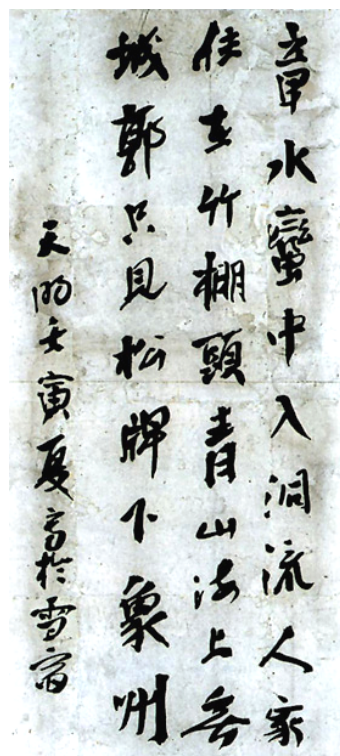 章水蠻中入洞流人家
住在竹棚頭青山海上無
城郭只見松牌下象州
天明壬寅夏於雪